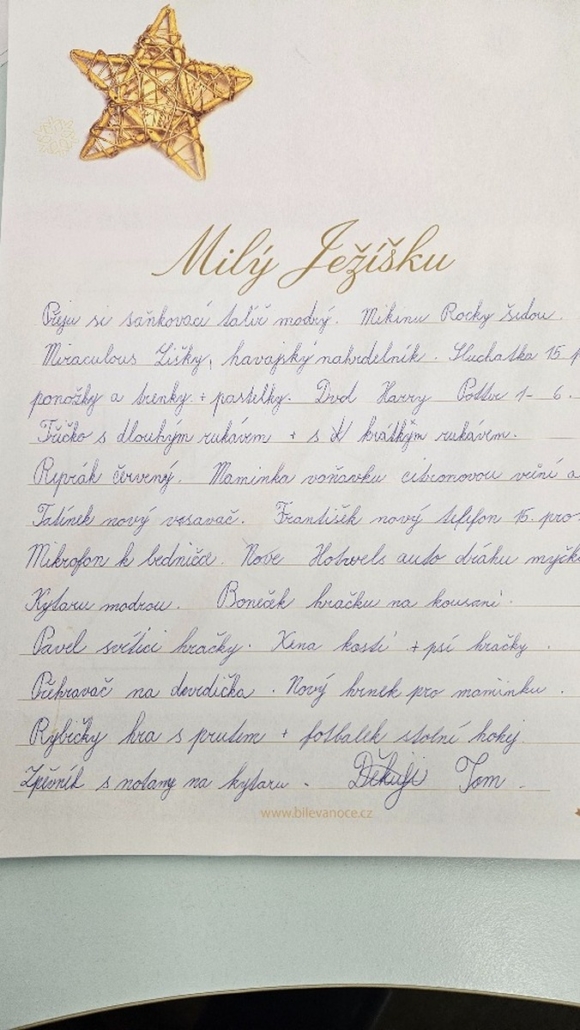 Milý Ježíšku
Přeju si saňkovací talíř modrý. Mikinu Rocky šedou.
Miraculous Lišky, havajský nahrdelník. Sluchatka 15 p
ponožky a trenky + pastelky. Dvd Harry Potter 1- 6.
Tričko s dlouhým rukávem + s krátkým rukávem.
Reprák červený. Maminka voňavku citronovou vůní a
Tatínek nový vysavač. František nový telefon 15. pro
Mikrofon k bedničce. Nove Hotwels auto dráhu myčk
Kytaru modrou. Boneček hračku na kousaní.
Pavel svítící hračky. Xena kosti + psí hračky.
Přehravač na dovdička. Nový hrnek pro maminku.
Rybičky hra s prutem + fotbalek stolní hokej
Zpěvník s notamy na kytaru. Děkuji Tom.
www.bilevanoce.cz